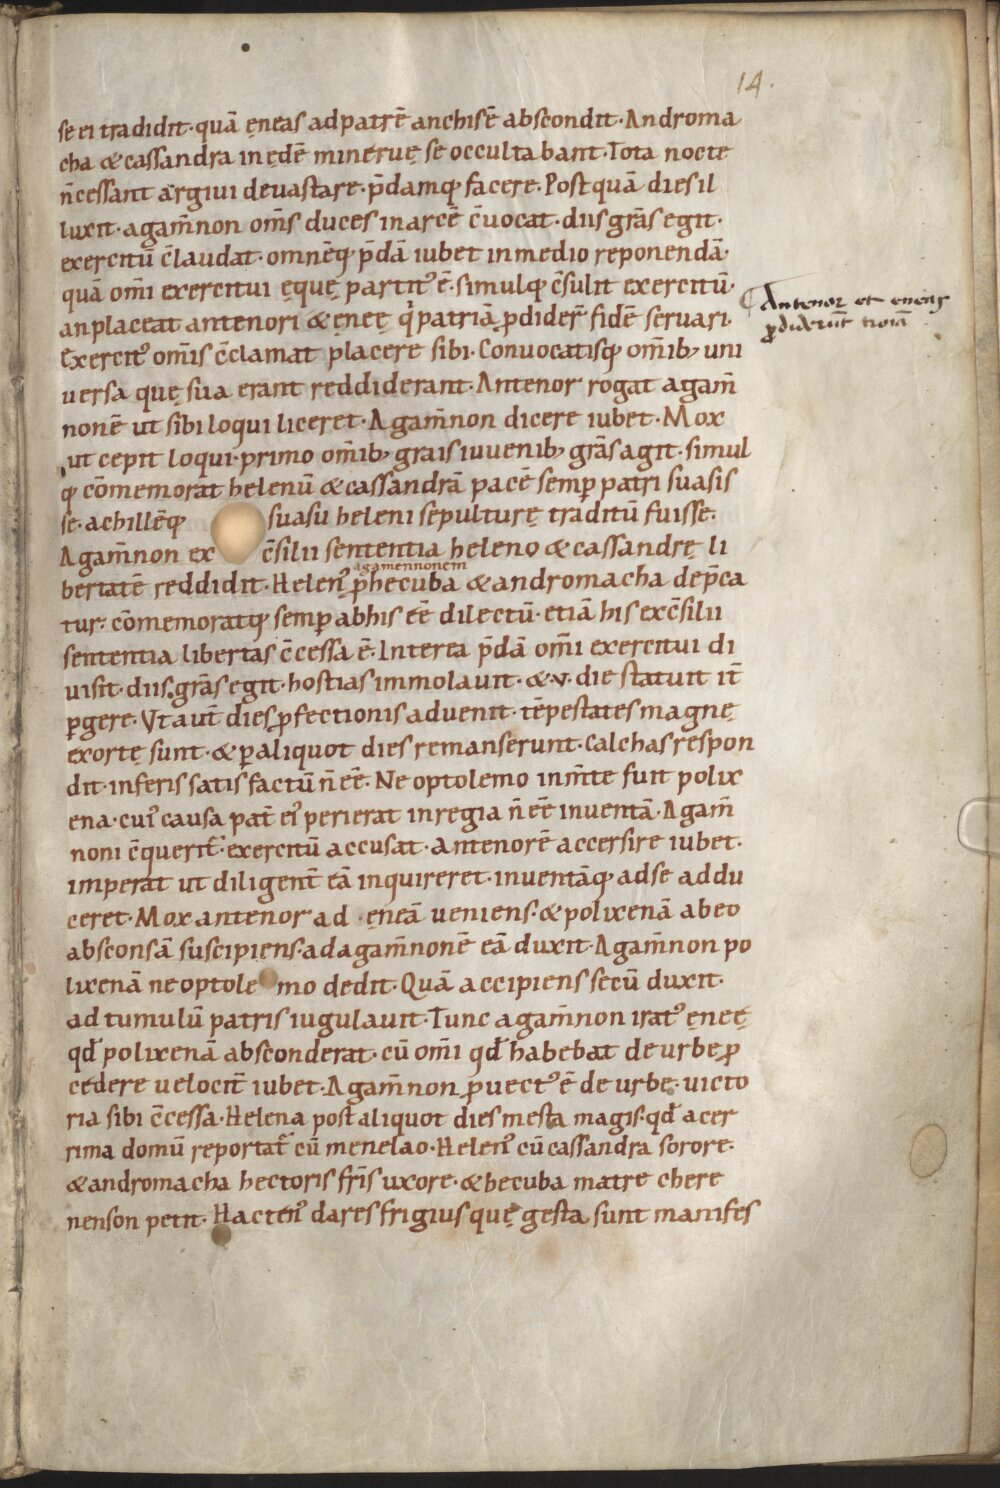 14.
se ei tradidit· quā ęneas ad patrē anchisē abscondit· Androma
cha & cassandra in ędē mineruę se occultabant· Tota nocte
n̄ cessant argiui deuastare· p̄damq; facere· Postquā dies il
luxit· agam̄non om̄s duces in arcē c̄uocat· diis gr̄as egit·
exercitū c̄laudat· omnēq; p̄dā iubet in medio reponendā·
quā om̄i exercitui ęquę partit᾽ ē· simulq; c̄sulit exercitū·
an placeat antenori & ęnęę qͥ patriā ꝓdider̄ fidē seruari·
Exercit᾽ om̄is c̄clamat placere sibi· Conuocatisq; om̄ib; uni
uersa quę sua erant reddiderant· Antenor rogat agam̄
nonē ut sibi loqui liceret· Agam̄non dicere iubet· Mox
ut cepit loqui· primo om̄ib; grais iuuenib; gr̄as agit· simul
q; cōmemorat helenū & cassandrā pacē semp̱ patri suasis
se· achillēq; suasu heleni sepulturę traditū fuisse·
Agam̄non ex c̄silii sententia heleno & cassandrę li
bertatē reddidit· Helen᾽ agamennonem p̱ hecuba & andromacha dep̄ca
tur· cōmemoratq; semp̱ ab his eē dilectū· etiā his ex c̄silii
sententia libertas c̄cessa ē· Interea p̄dā om̄i exercitui di
uisit· diis gr̄as egit· hostias immolauit· & v· die statuit it̄
p̱gere· Vt aut̄ dies ꝓfectionis aduenit· tēpestates magnę
exortę sunt· & p̱ aliquot dies remanserunt· Calchas respon
dit· inferis satisfactū n̄ eē· Neoptolemo in m̄te fuit polix
ena· cui᾽ causa pat̄ ei᾽ perierat in regia n̄ eē inuentā· Agam̄
noni c̄querit᷑· exercitū accusat· Antenorē accersire iubet·
imperat ut diligent̄ eā inquireret· inuentāq; ad se addu
ceret· Mox antenor ad ęneā ueniens· & polixenā ab eo
absconsā suscipiens· ad agam̄nonē eā duxit· Agam̄non po
lixenā neoptolemo dedit· Quā accipiens secū duxit·
ad tumulū patris iugulauit· Tunc agam̄non irat᾽ ęnęę
qd̄ polixenā absconderat· cū om̄i qd̄ habebat de urbe ꝓ
cedere uelocit̄ iubet· Agam̄non ꝓuect᾽ ē de urbe· uicto
ria sibi c̄cessa· Helena post aliquot dies mesta magis· qd̄ acer
rima domū reportat᷑ cū menelao· Helen᾽ cū cassandra sorore·
& andromacha hectoris fr̄is uxore· & hecuba matre chere
nenson petit· Hacten᾽ dares frigius quę gesta sunt manifes
Antenor et eneas
ꝓdiderūt troiā